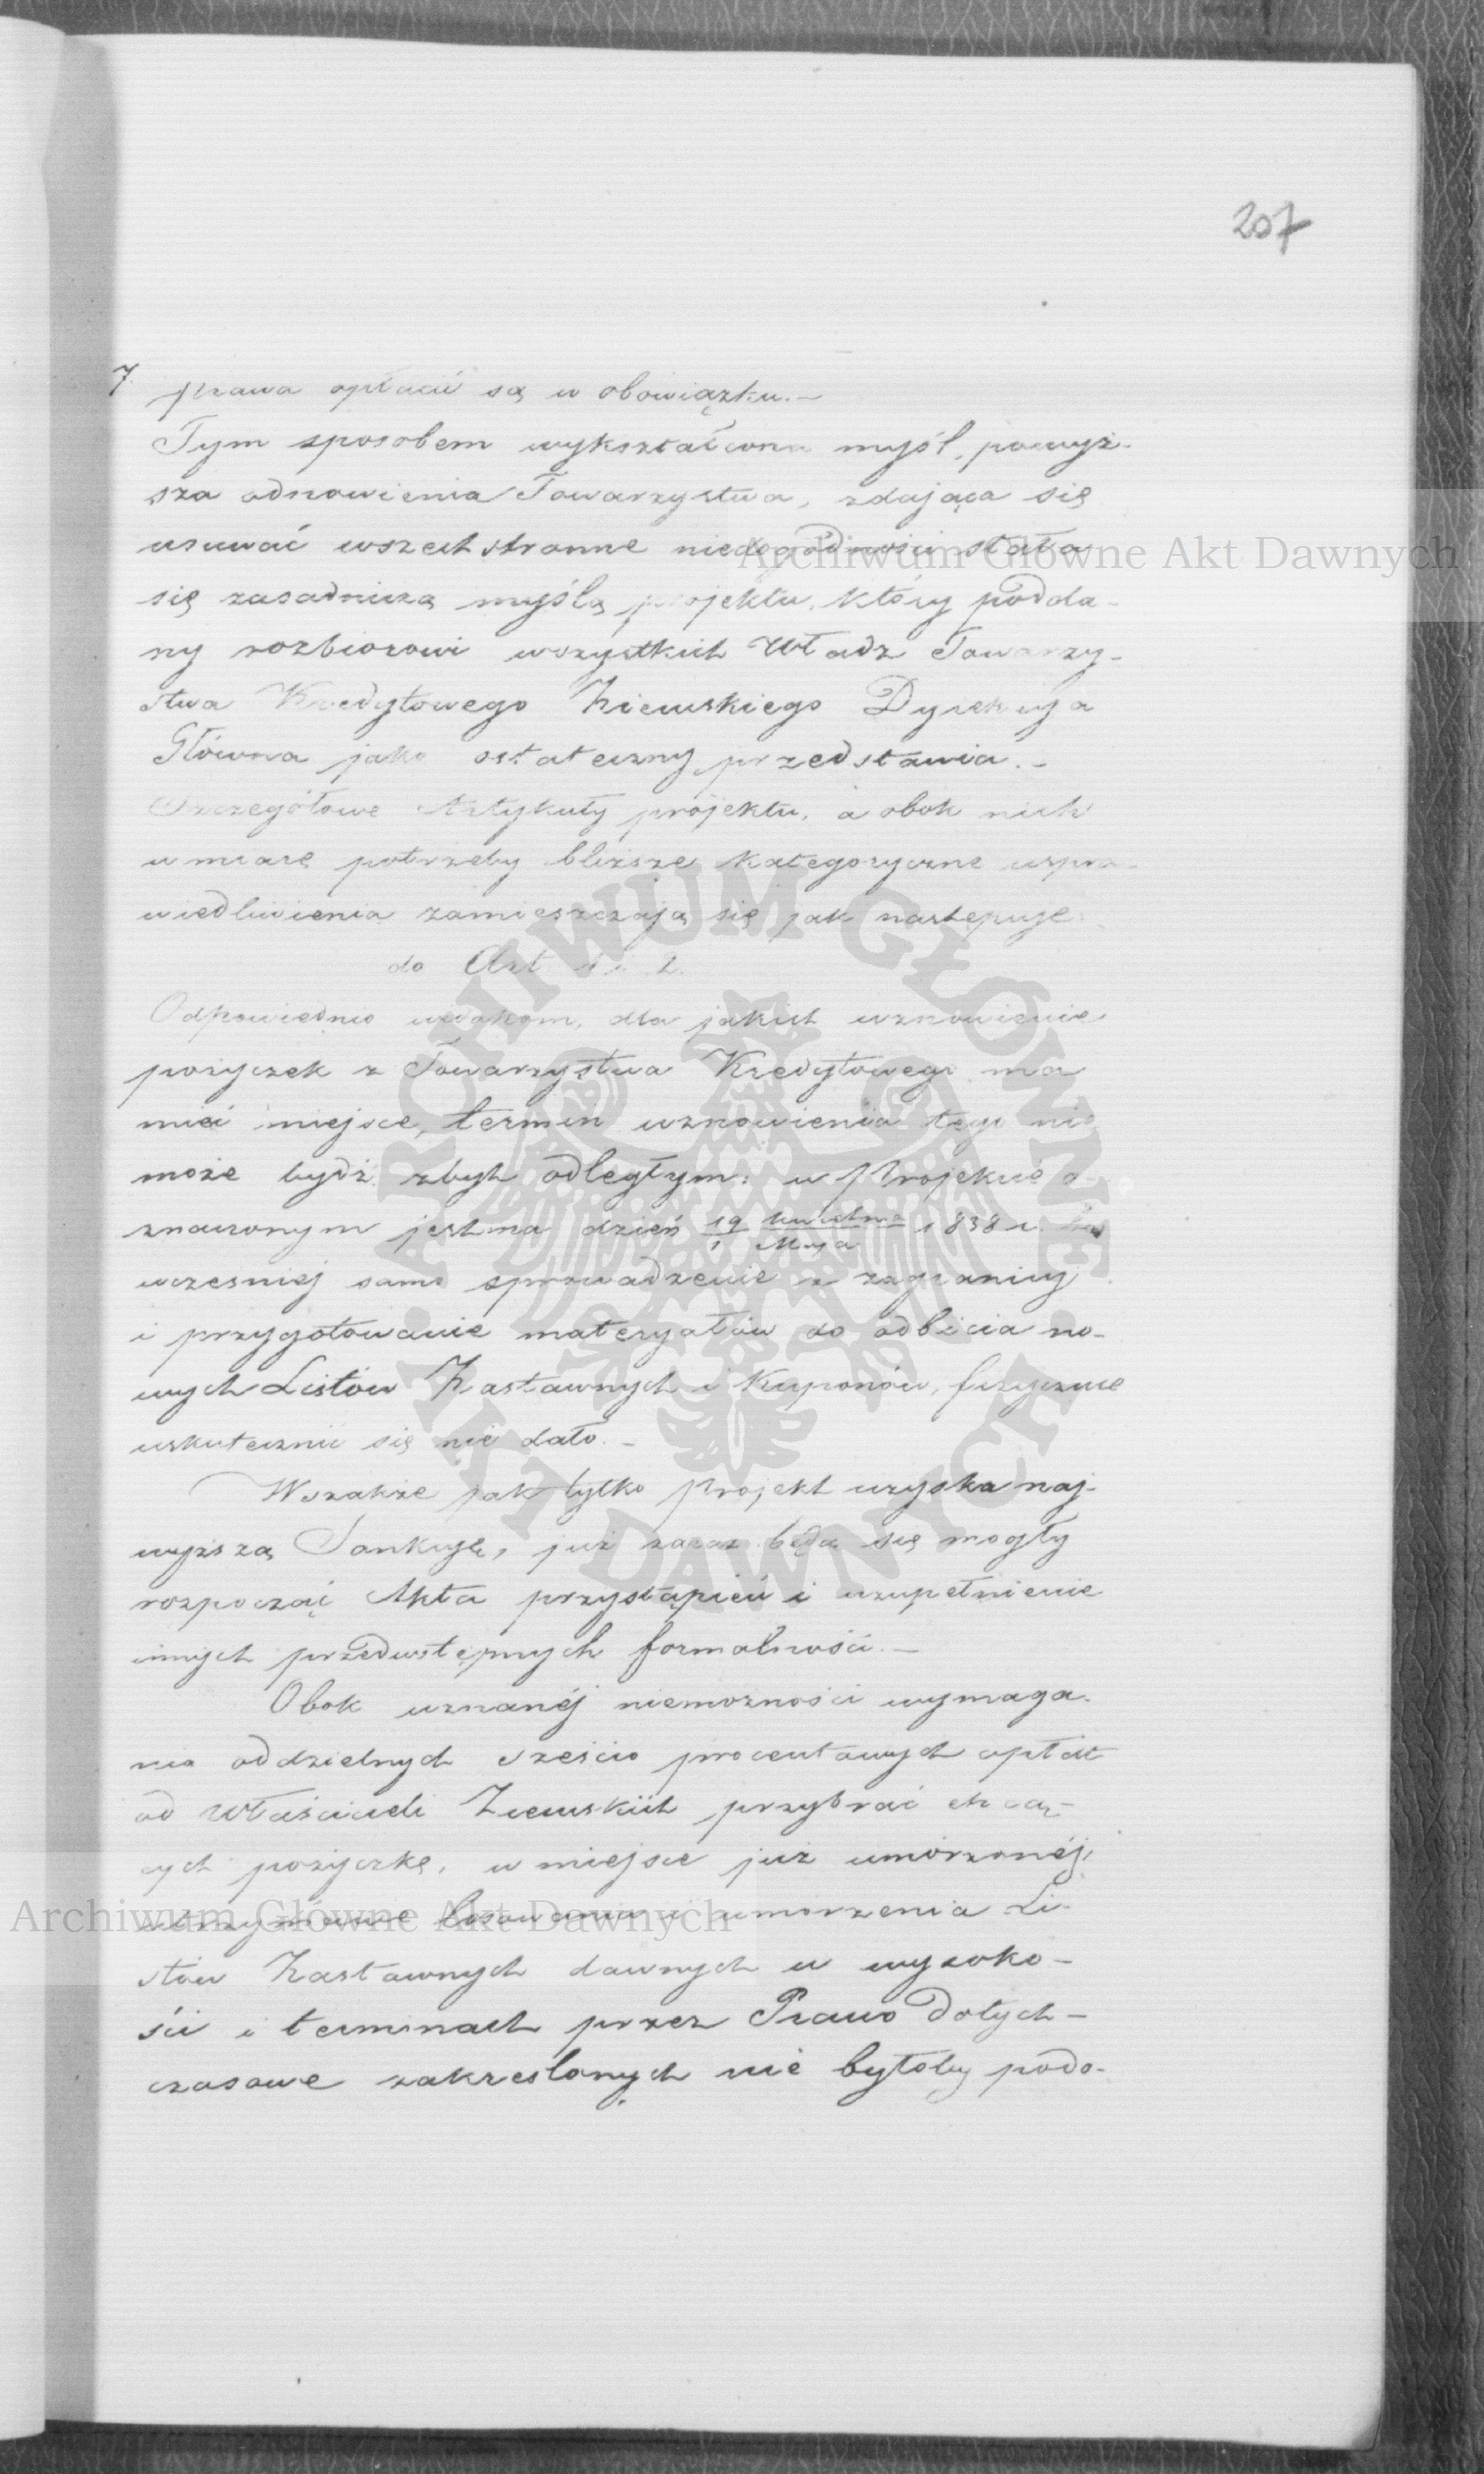 207
7. prawa opłacić są w obowiązku.—
Tym sposobem wykształcona myśl, powyż-
sza odnowienia Towarzystwa, zdająca się
usuwać wszechstronne niedogodności stała
się zasadniczą myślą projektu, który podda-
ny rozbiorowi wszystkich Władz Towarzy-
stwa Kredytowego Ziemskiego Dyrekcya
Główna jako ostateczny przedstawia.—
Szczegółowe Artykuły projektu, a obok nich
w miarę potrzeby bliższe kategoryczne uspra-
wiedliwienia zamieszczają się jak następuje:
do Art. 1 i 2.
Odpowiednio widokom, dla jakich wznowienie
pożyczek z Towarzystwa Kredytowego ma
mieć miejsce, termin wznowienia tego nie
może bydź zbyt odległym: w Projekcie o-
znaczonym jest na dzień 19 Kwietnia / 1 Maja 1838 r. bo
wcześniej samo sprowadzenie z zagranicy
i przygotowanie materyałów do odbicia no-
wych Listów Zastawnych i Kuponów, fizycznie
uskutecznić się nie dało.—
Wszakże jak tylko Projekt uzyska naj-
wyższą Sankcyę, już zaraz będą się mogły
rozpocząć Akta przystąpień i uzupełnienie
innych przedwstępnych formalności.—
Obok uznanéj niemożności wymaga-
nia oddzielnych sześcio procentowych opłat
od Właścicieli Ziemskich przybrać chcą-
cych pożyczkę, w miejsce już umorzonéj,
utrzymanie losowania i umorzenia Li-
stów Zastawnych dawnych w wysoko-
ści i terminach przez Prawo dotych-
czasowe zakreślonych nie byłoby podo-
Archiwum Główne Akt Dawnych
ARCHIWUM GŁÓWNE AKT DAWNYCH
Archiwum Główne Akt Dawnych